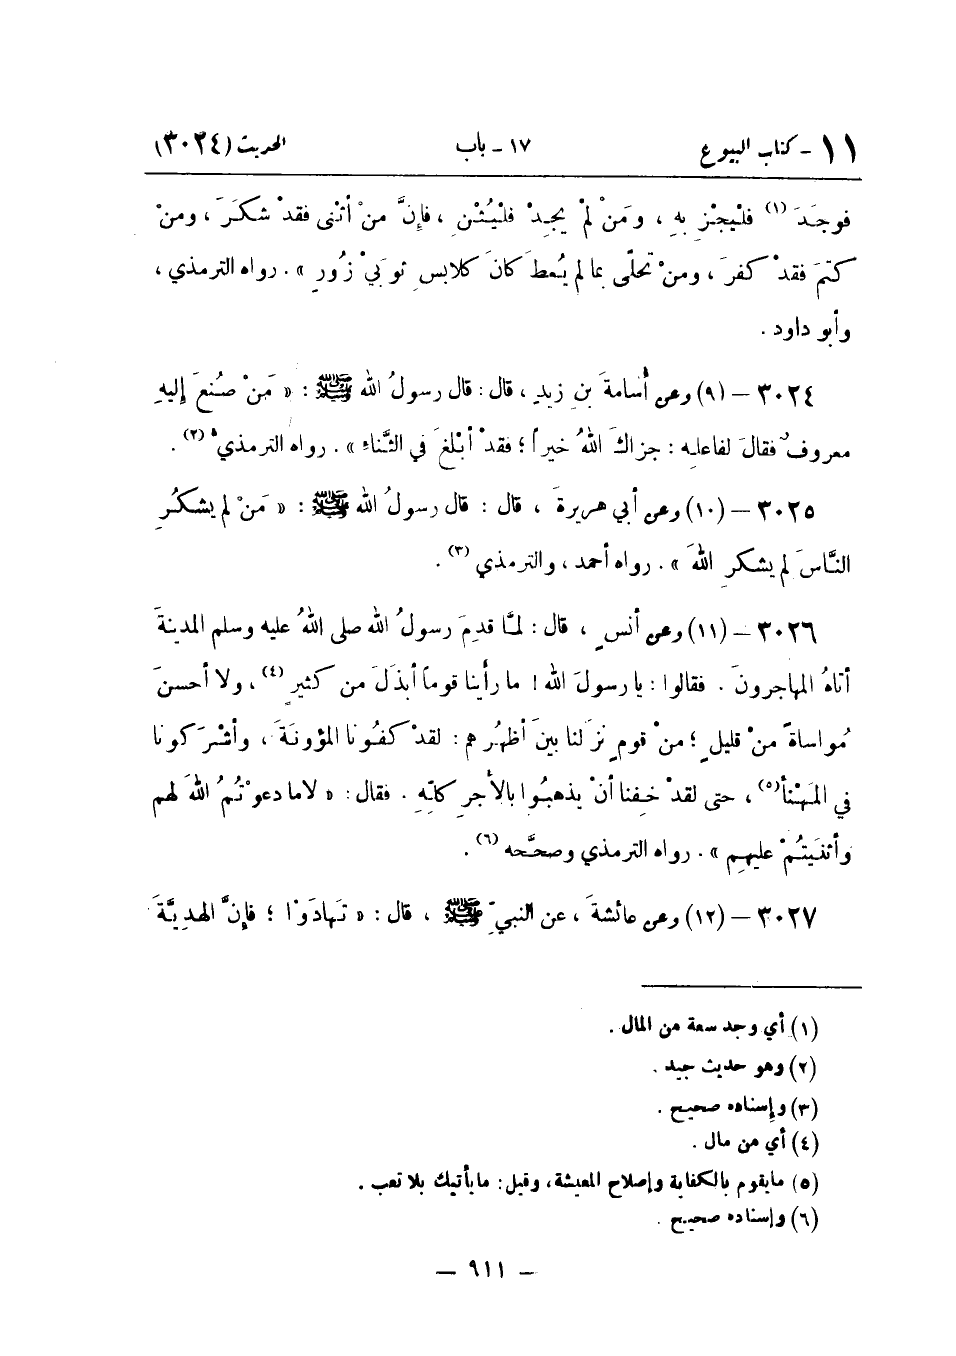 ١١ - كتاب البيوع ١٧ - باب الحديث (٣٠٢٤)
فوجَدَ (١) فلْيجْزِ بهِ ، ومَنْ لمْ يجِدْ فلْيُثْنِ ، فإنَّ منْ أثْنى فقدْ شكَرَ ، ومنْ
كتمَ فقدْ كفرَ ، ومنْ تحلّى بما لم يُعطَ كانَ كلابسِ ثوبيْ زُورٍ » . رواه الترمذي ،
وأبو داود .
٣٠٢٤ – (٩) وعن أُسامةَ بنِ زيدٍ ، قال : قال رسولُ الله ﷺ : « مَنْ صُنعَ إليهِ
معروفٌ فقالَ لفاعلِه : جزاكَ اللهُ خيراً ؛ فقدْ أبْلغَ في الثَّناءِ » . رواه الترمذي (٢) .
٣٠٢٥ – (١٠) وعن أبي هريرةَ ، قال : قال رسولُ الله ﷺ : « مَنْ لم يشكُرِ
النَّاسَ لم يشكرِ اللهَ » . رواه أحمد ، والترمذي (٣) .
٣٠٢٦ – (١١) وعن أنسٍ ، قال : لمَّا قدِمَ رسولُ الله صلى اللهُ عليه وسلم المدينةَ
أتاهُ المهاجرونَ . فقالوا : يا رسولَ الله ! ما رأينا قوماً أبذَلَ من كثيرٍ (٤) ، ولا أحسنَ
مُواساةً منْ قليلٍ ؛ منْ قومٍ نزَلنا بينَ أظهُرِهم : لقدْ كفُونا المؤونةَ ، وأشْرَكونا
في المَهْنأِ (٥) ، حتى لقدْ خِفنا أنْ يذهبُوا بالأجرِ كلِّهِ . فقال : « لا ما دعوْتُمُ اللهَ لهم
وأثنَيتُمْ عليهِم » . رواه الترمذي وصحَّحه (٦) .
٣٠٢٧ – (١٢) وعن عائشةَ ، عن النبيِّ ﷺ ، قال : « تَهادَوْا ؛ فإنَّ الهديَّةَ
(١) أي وجد سعة من المال .
(٢) وهو حديث جيد .
(٣) وإسناده صحيح .
(٤) أي من مال .
(٥) ما يقوم بالكفاية وإصلاح المعيشة، وقيل : ما يأتيك بلا تعب .
(٦) وإسناده صحيح .
– ٩١١ –